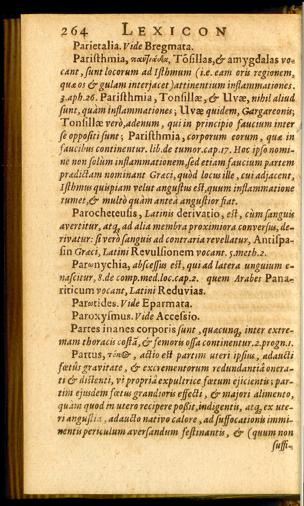 264 LEXICON
Parietalia. Vide Bregmata.
Paristhmia, Tõsillas, & amygdalas vo-
cant, sunt locorum ad Isthmum (i.e. eam oris regionem,
qua os & gulam interjacet) attinentium inflammationes.
3.aph.26. Paristhmia, Tonsillæ, & Uvæ, nihil aliud
sunt, quàm inflammationes; Uvæ quidem, Gargareonis;
Tonsillæ verò, adenum, qui in principio faucium inter
se oppositi sunt; Paristhmia, corporum eorum, quæ in
faucibus continentur. lib. de tumor. cap.17. Hoc ipso nomi-
ne non solùm inflammationem, sed etiam faucium partem
prædictam nominant Græci, quòd locus ille, cui adjacent,
Isthmus quispiam velut angustus est, quum inflammatione
tumet, & multò quàm anteà angustior fiat.
Parocheteusis, Latinis derivatio, est, cùm sanguis
avertitur, atq, ad alia membra proximiora conversus, de-
rivatur: si verò sanguis ad contraria revellatur, Antispa-
sin Græci, Latini Revulsionem vocant. 5.meth.2.
Parωnychia, abscessus est, qui ad latera unguium e-
nascitur, 5. de comp. med. loc. cap.2. quem Arabes Pana-
riticum vocant, Latini Reduvias.
Parωtides. Vide Eparmata.
Paroxysmus. Vide Accessio.
Partes inanes corporis sunt, quæcunq, inter extre-
mam thoracis costã, & femoris ossa continentur. 2.progn.1.
Partus, actio est partim uteri ipsius, adaucti
fœtûs gravitate, & excrementorum redundantiâ onera-
ti & distenti, vi propriâ expultrice fœtum ejicientis; par-
tim ejusdem fœtus grandioris effecti, & majori alimento,
quàm quod in utero recipere possit, indigentis, atq, ex ute-
ri angustia, adaucto nativo calore, ad suffocationis immi-
nentis periculum aversandum festinantis, & (quum non
suffi-